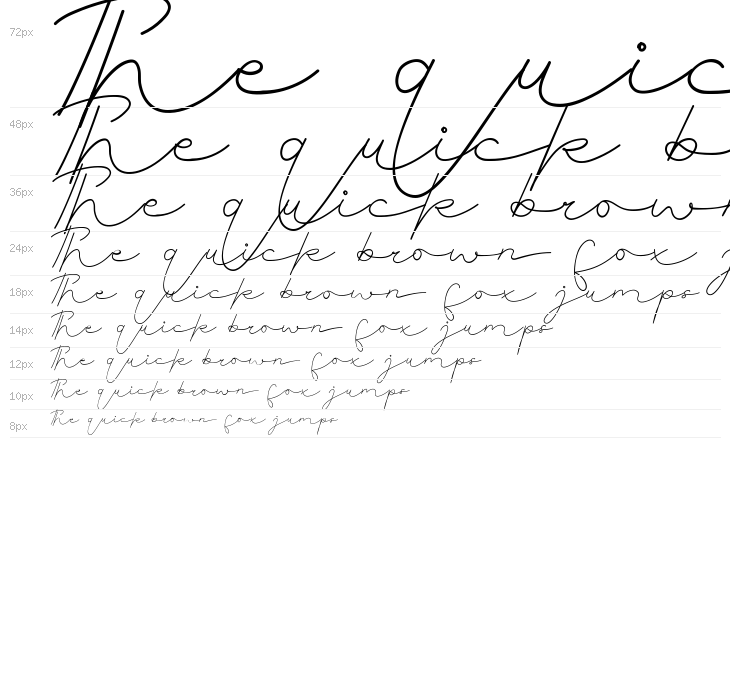 72px The quic
48px The quick b
36px The quick brown
24px The quick brown fox j
18px The quick brown fox jumps
14px The quick brown fox jumps
12px The quick brown fox jumps
10px The quick brown fox jumps
8px The quick brown fox jumps